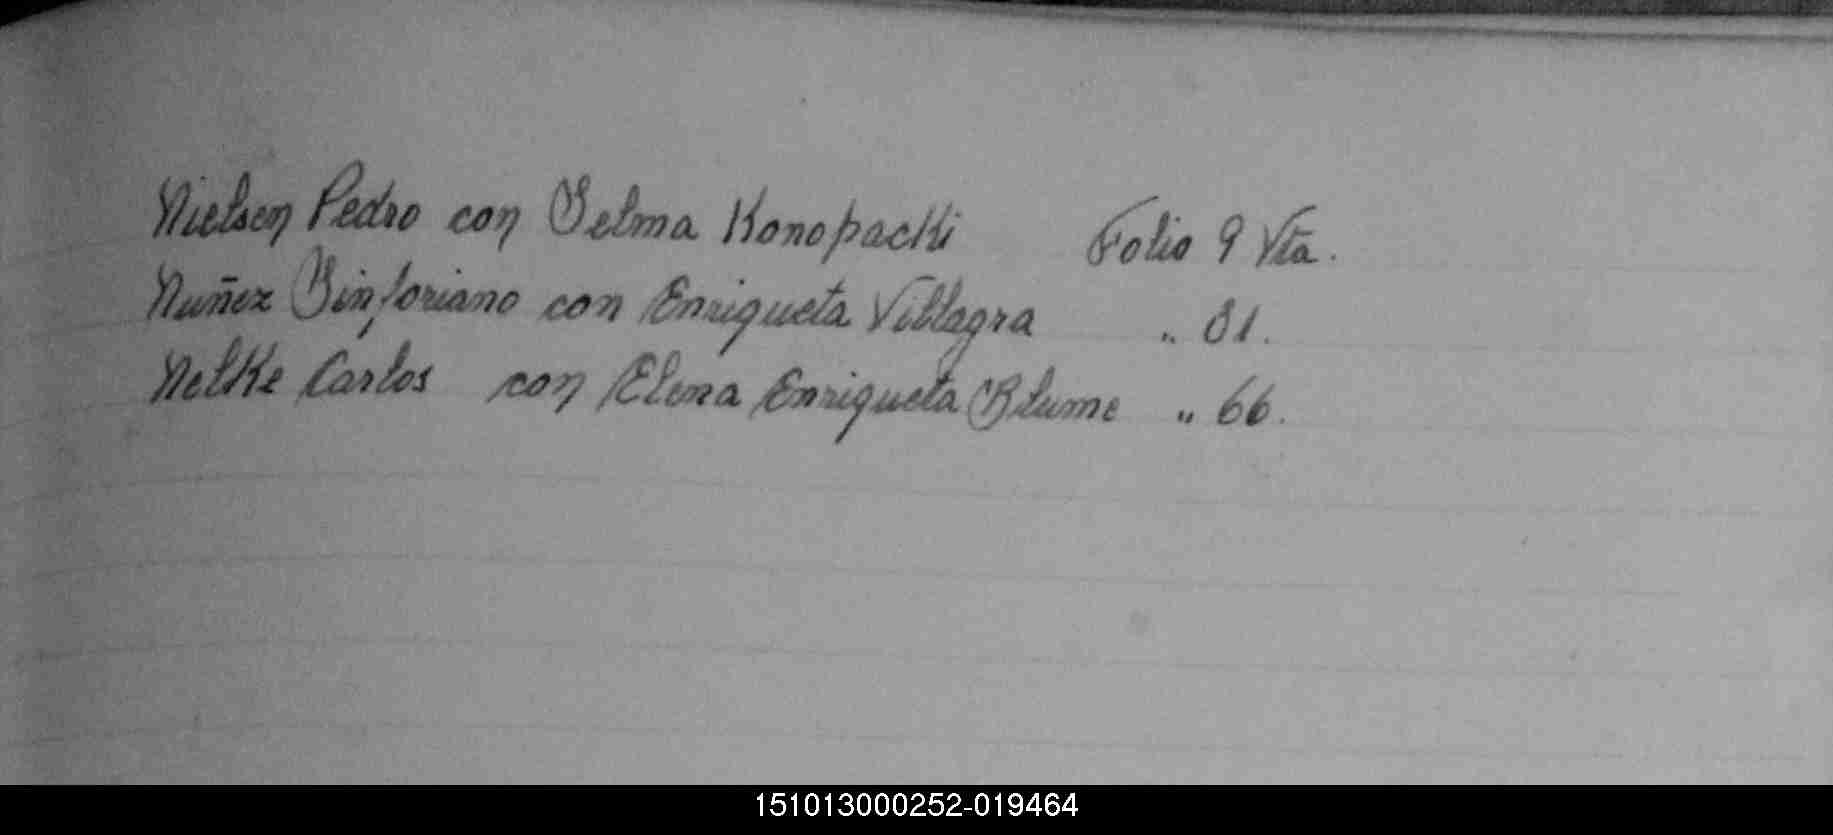 Nielsen Pedro con Selma Konopacki Folio 9 Vta.
Nuñez Sinforiano con Enriqueta Villagra " 81.
Nelke Carlos con Elena Enriqueta Blume " 66.
151013000252-019464